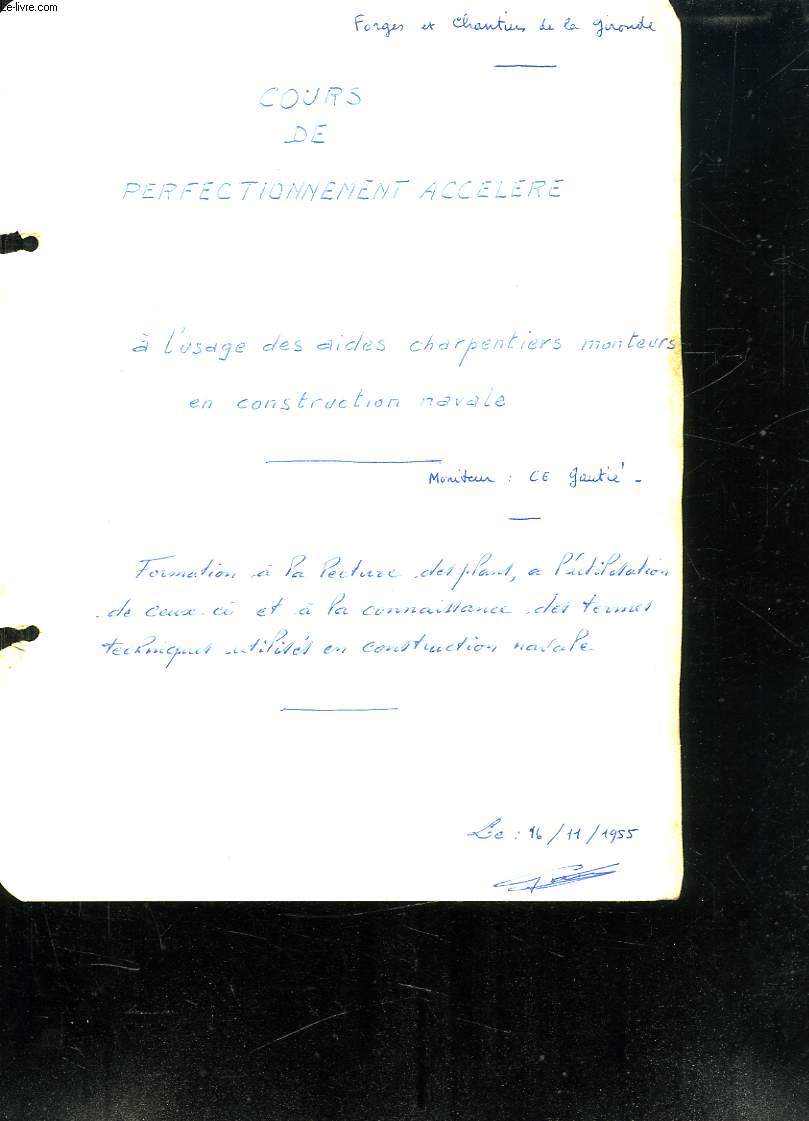 Le-livre.com
Forges et Chantiers de la Gironde
COURS
DE
PERFECTIONNEMENT ACCELERE
à l'usage des aides charpentiers monteurs
en construction navale
Moniteur : CE Gautié -
Formation à la lecture des plans, a l'utilisation
de ceux-ci et à la connaissance des termes
techniques utilisés en construction navale.
Le : 16/11/1955